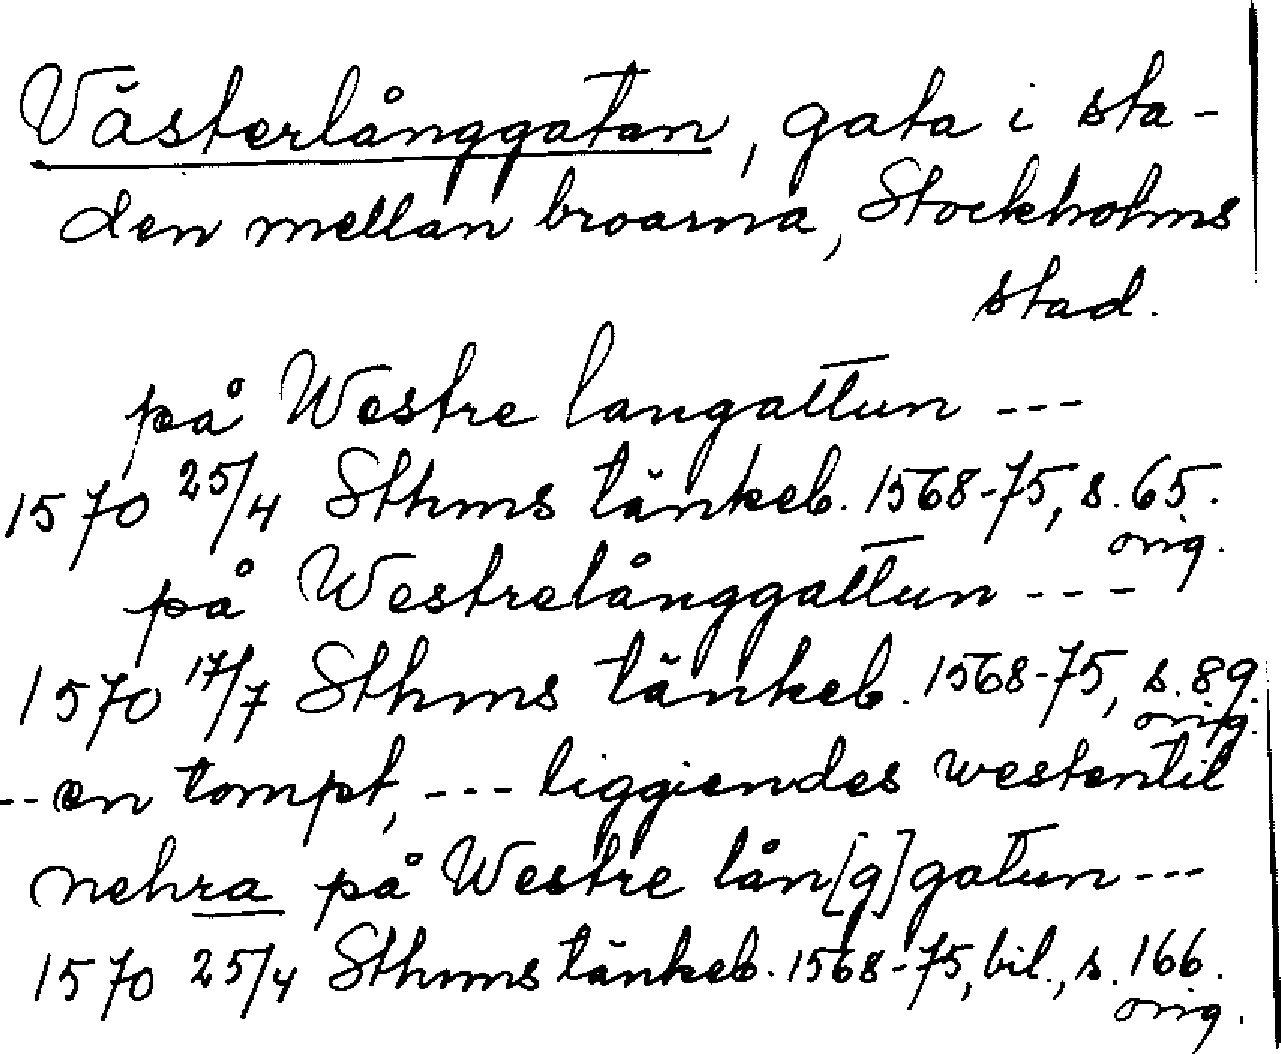 Västerlånggatan, gata i sta-
den mellan broarna, Stockholms
stad.
på Westre langattun ---
1570 25/4 Sthms tänkeb. 1568-75, s. 65.
orig.
på Westrelånggattun ---
1570 17/7 Sthms tänkeb. 1568-75, s. 89.
orig.
-- en tompt, --- liggiendes westentil
nehra på Westre lån[g]gatun ---
1570 25/4 Sthms tänkeb. 1568-75, bil., s. 166.
orig.